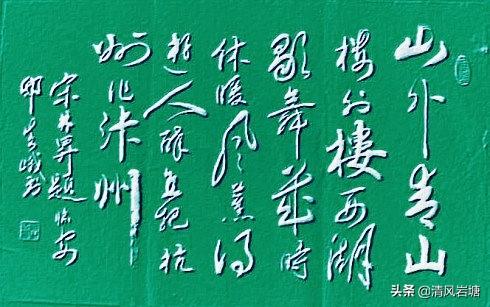 山外青山
楼外樓西湖
歌舞幾时
休暖风薰得
遊人醉直把杭
州作汴州
宋林昇题临安
头条 @清风岩塘